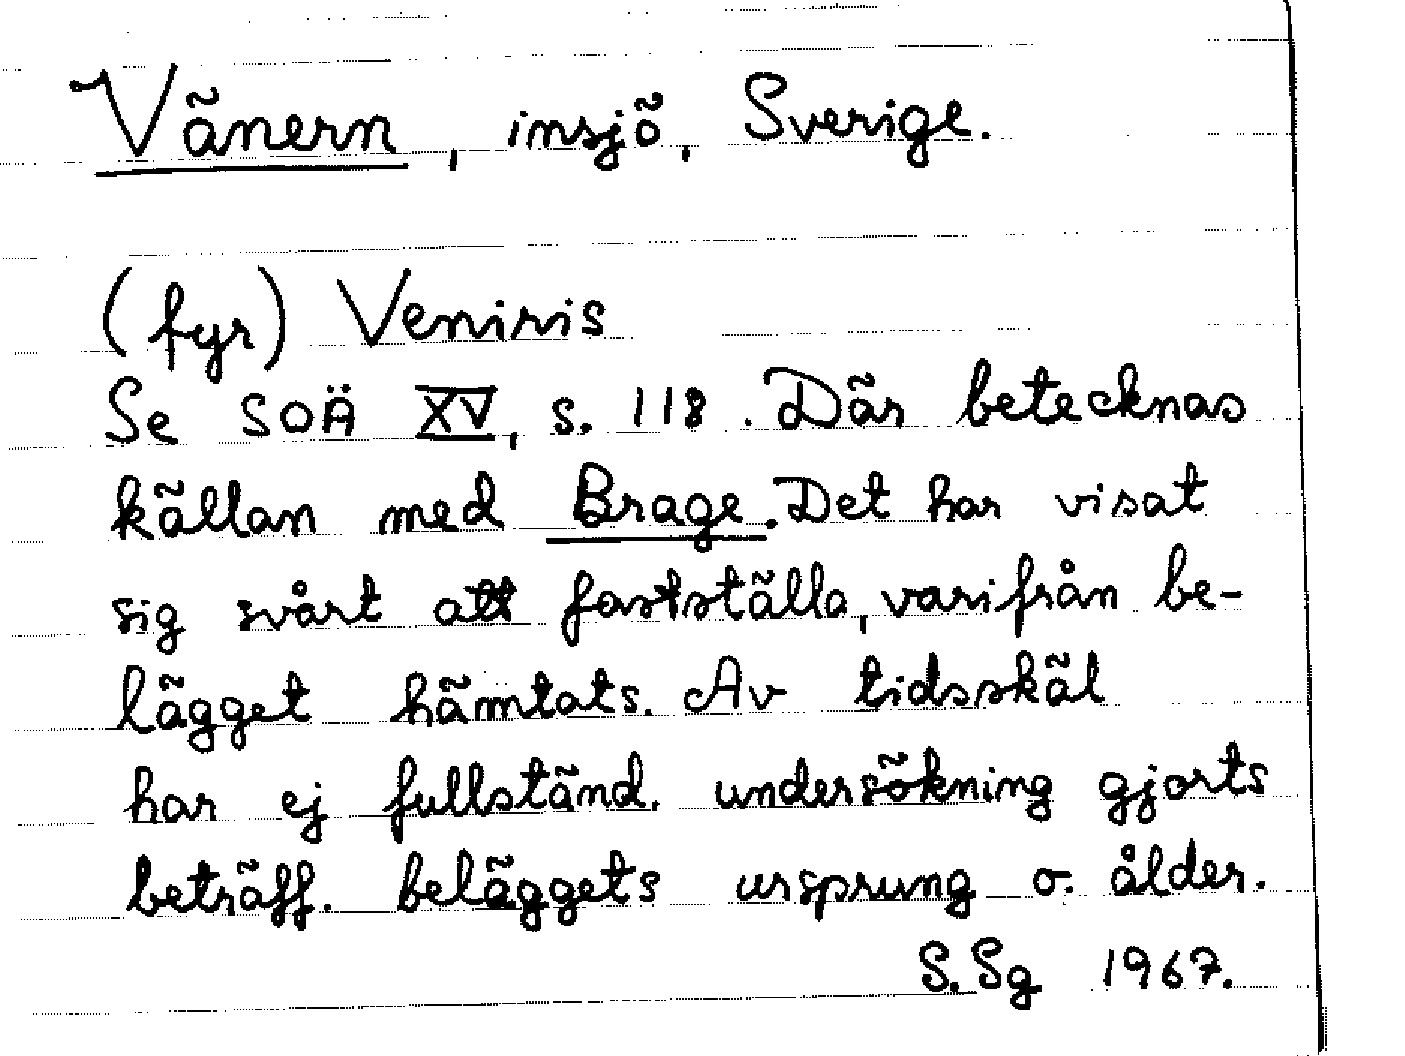 Vänern, insjö, Sverige.
(fyr) Veniris
Se SOÄ XV, s. 118. Där betecknas
källan med Brage. Det har visat
sig svårt att fastställa, varifrån be-
lägget hämtats. Av tidsskäl
har ej fullständ. undersökning gjorts
beträff. beläggets ursprung o. ålder.
S. Sg 1967.